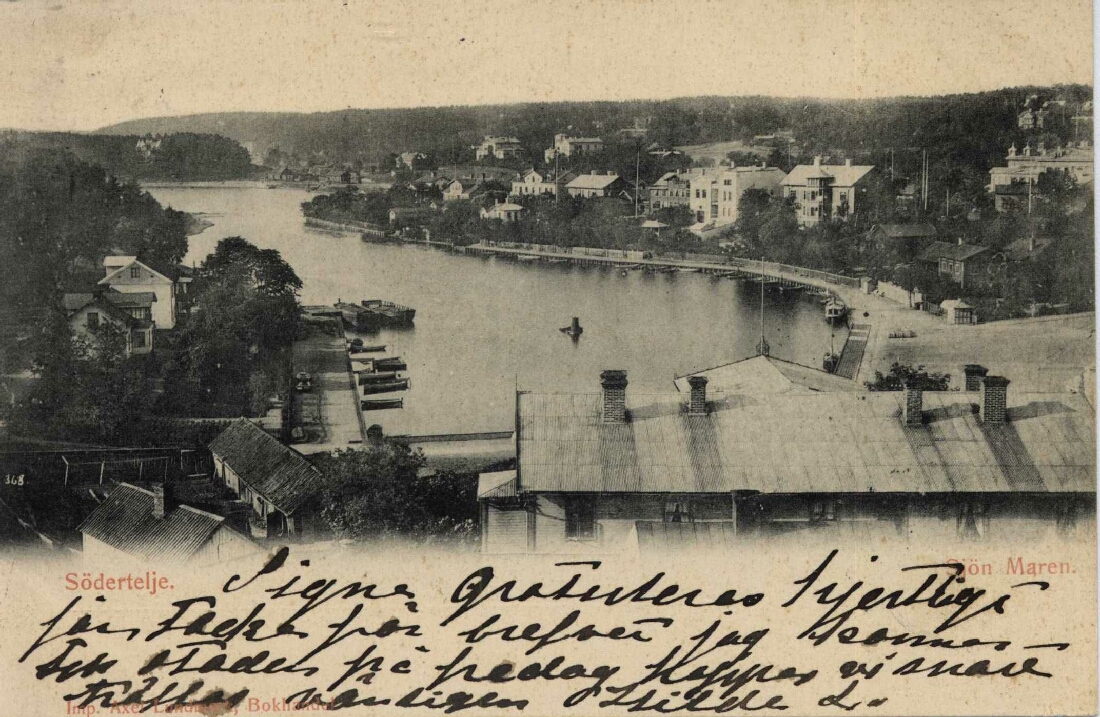 368
Södertelje.
Sjön Maren.
Signe Gratuleras hjertligt
för brefvet jag kommer
till staden på fredag hoppas vi snart
träffas vänligen Hilde L.
Imp. Axel Landin, Bokhandel